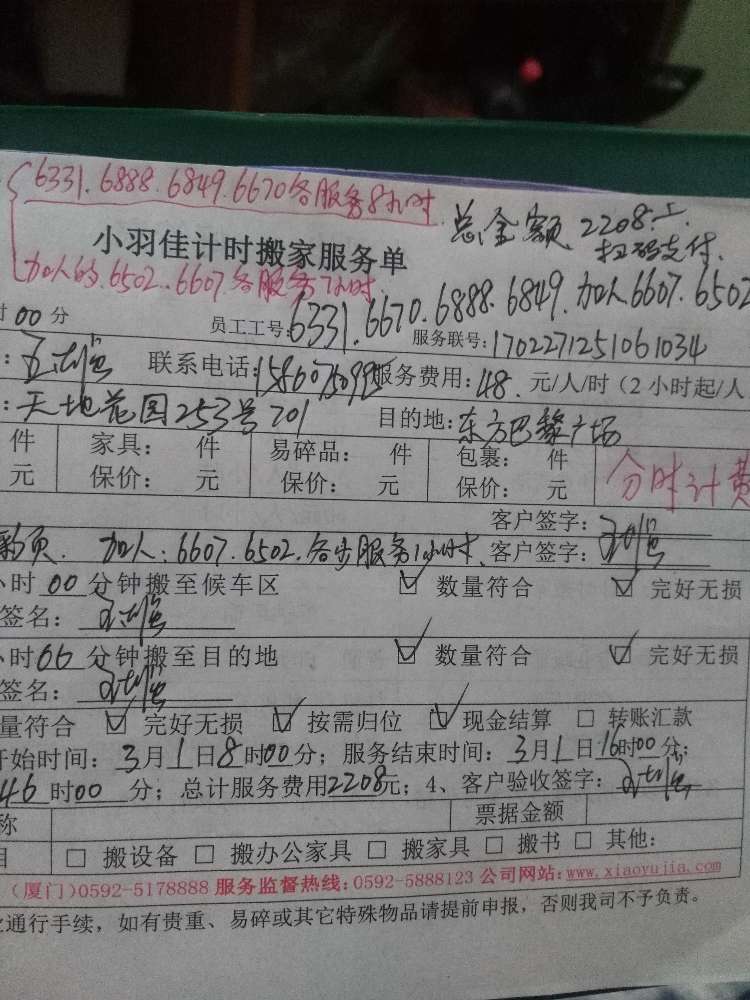 6331.6888.6849.6670各服务8小时.
总金额.2208.元
扫码支付.
小羽佳计时搬家服务单
加人的.6502.6607.各服务7小时.
时00分 员工工号:6331.6670.6888.6849.加人6607.6502
服务联号:1702271251061034
联系电话: 服务费用:48.元/人/时(2小时起/人
:天地花园253号701 目的地:东方巴黎广场
件 家具: 件 易碎品: 件 包裹: 件 分时计费
元 保价: 元 保价: 元 保价: 元
客户签字:
加人:6607.6502.各少服务1小时. 客户签字:
小时00分钟搬至候车区 ☑ 数量符合 ☑ 完好无损
签名:
小时00分钟搬至目的地 ☑ 数量符合 ☑ 完好无损
签名:
量符合 ☑ 完好无损 ☑ 按需归位 ☑ 现金结算 □ 转账汇款
开始时间:3月1日8时00分;服务结束时间:3月1日16时00分;
46时00分;总计服务费用2208元;4、客户验收签字:
称 票据金额
目 □ 搬设备 □ 搬办公家具 □ 搬家具 □ 搬书 □ 其他:
(厦门)0592-5178888 服务监督热线:0592-5888123 公司网站:www.xiaoyujia.com
通行手续,如有贵重、易碎或其它特殊物品请提前申报,否则我司不予负责。